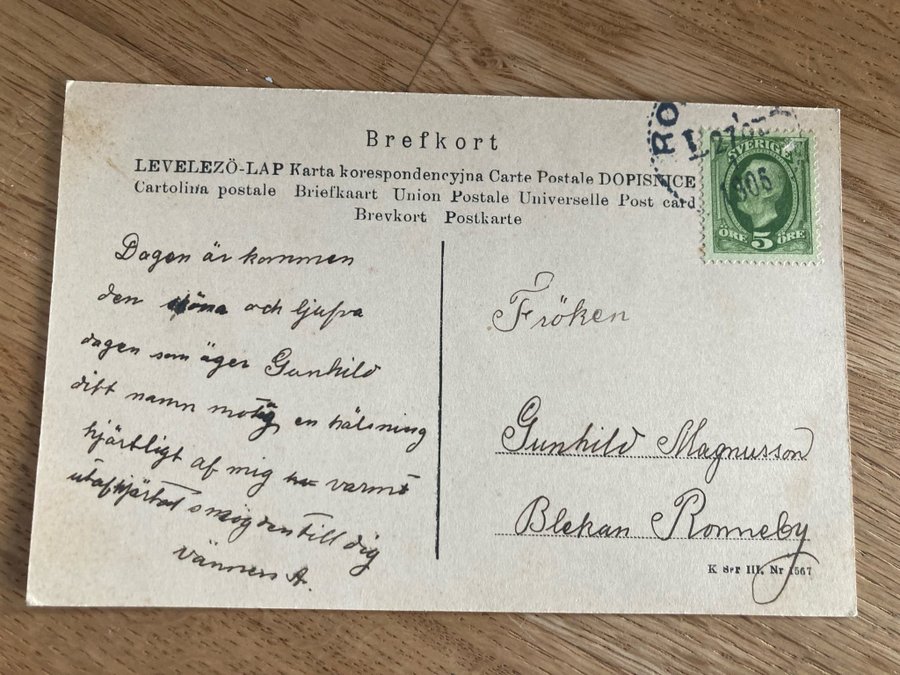 Brefkort
LEVELEZÖ-LAP Karta korespondencyjna Carte Postale DOPISNICE
Cartolina postale Briefkaart Union Postale Universelle Post card
Brevkort Postkarte
RO
27
1906
SVERIGE
ÖRE 5 ÖRE
Dagen är kommen
den sköna och ljufva
dagen som äger Gunhild
ditt namn motag en hälsning
hjärtligt af mig varmt
utaf hjärtat smög den till dig
vännen A.
Fröken
Gunhild Magnusson
Blekan Ronneby
K Ser III. Nr 1567